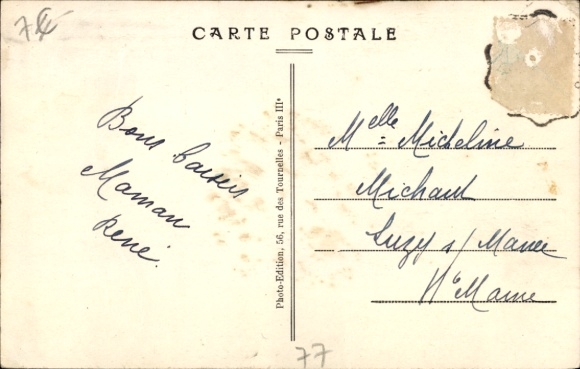 7€
CARTE POSTALE
Bons baisers
Maman
René.
Photo-Edition, 56, rue des Tournelles - Paris IIIe
Melle Micheline
Michaut
Luzy s/ Marne
Hte Marne
77